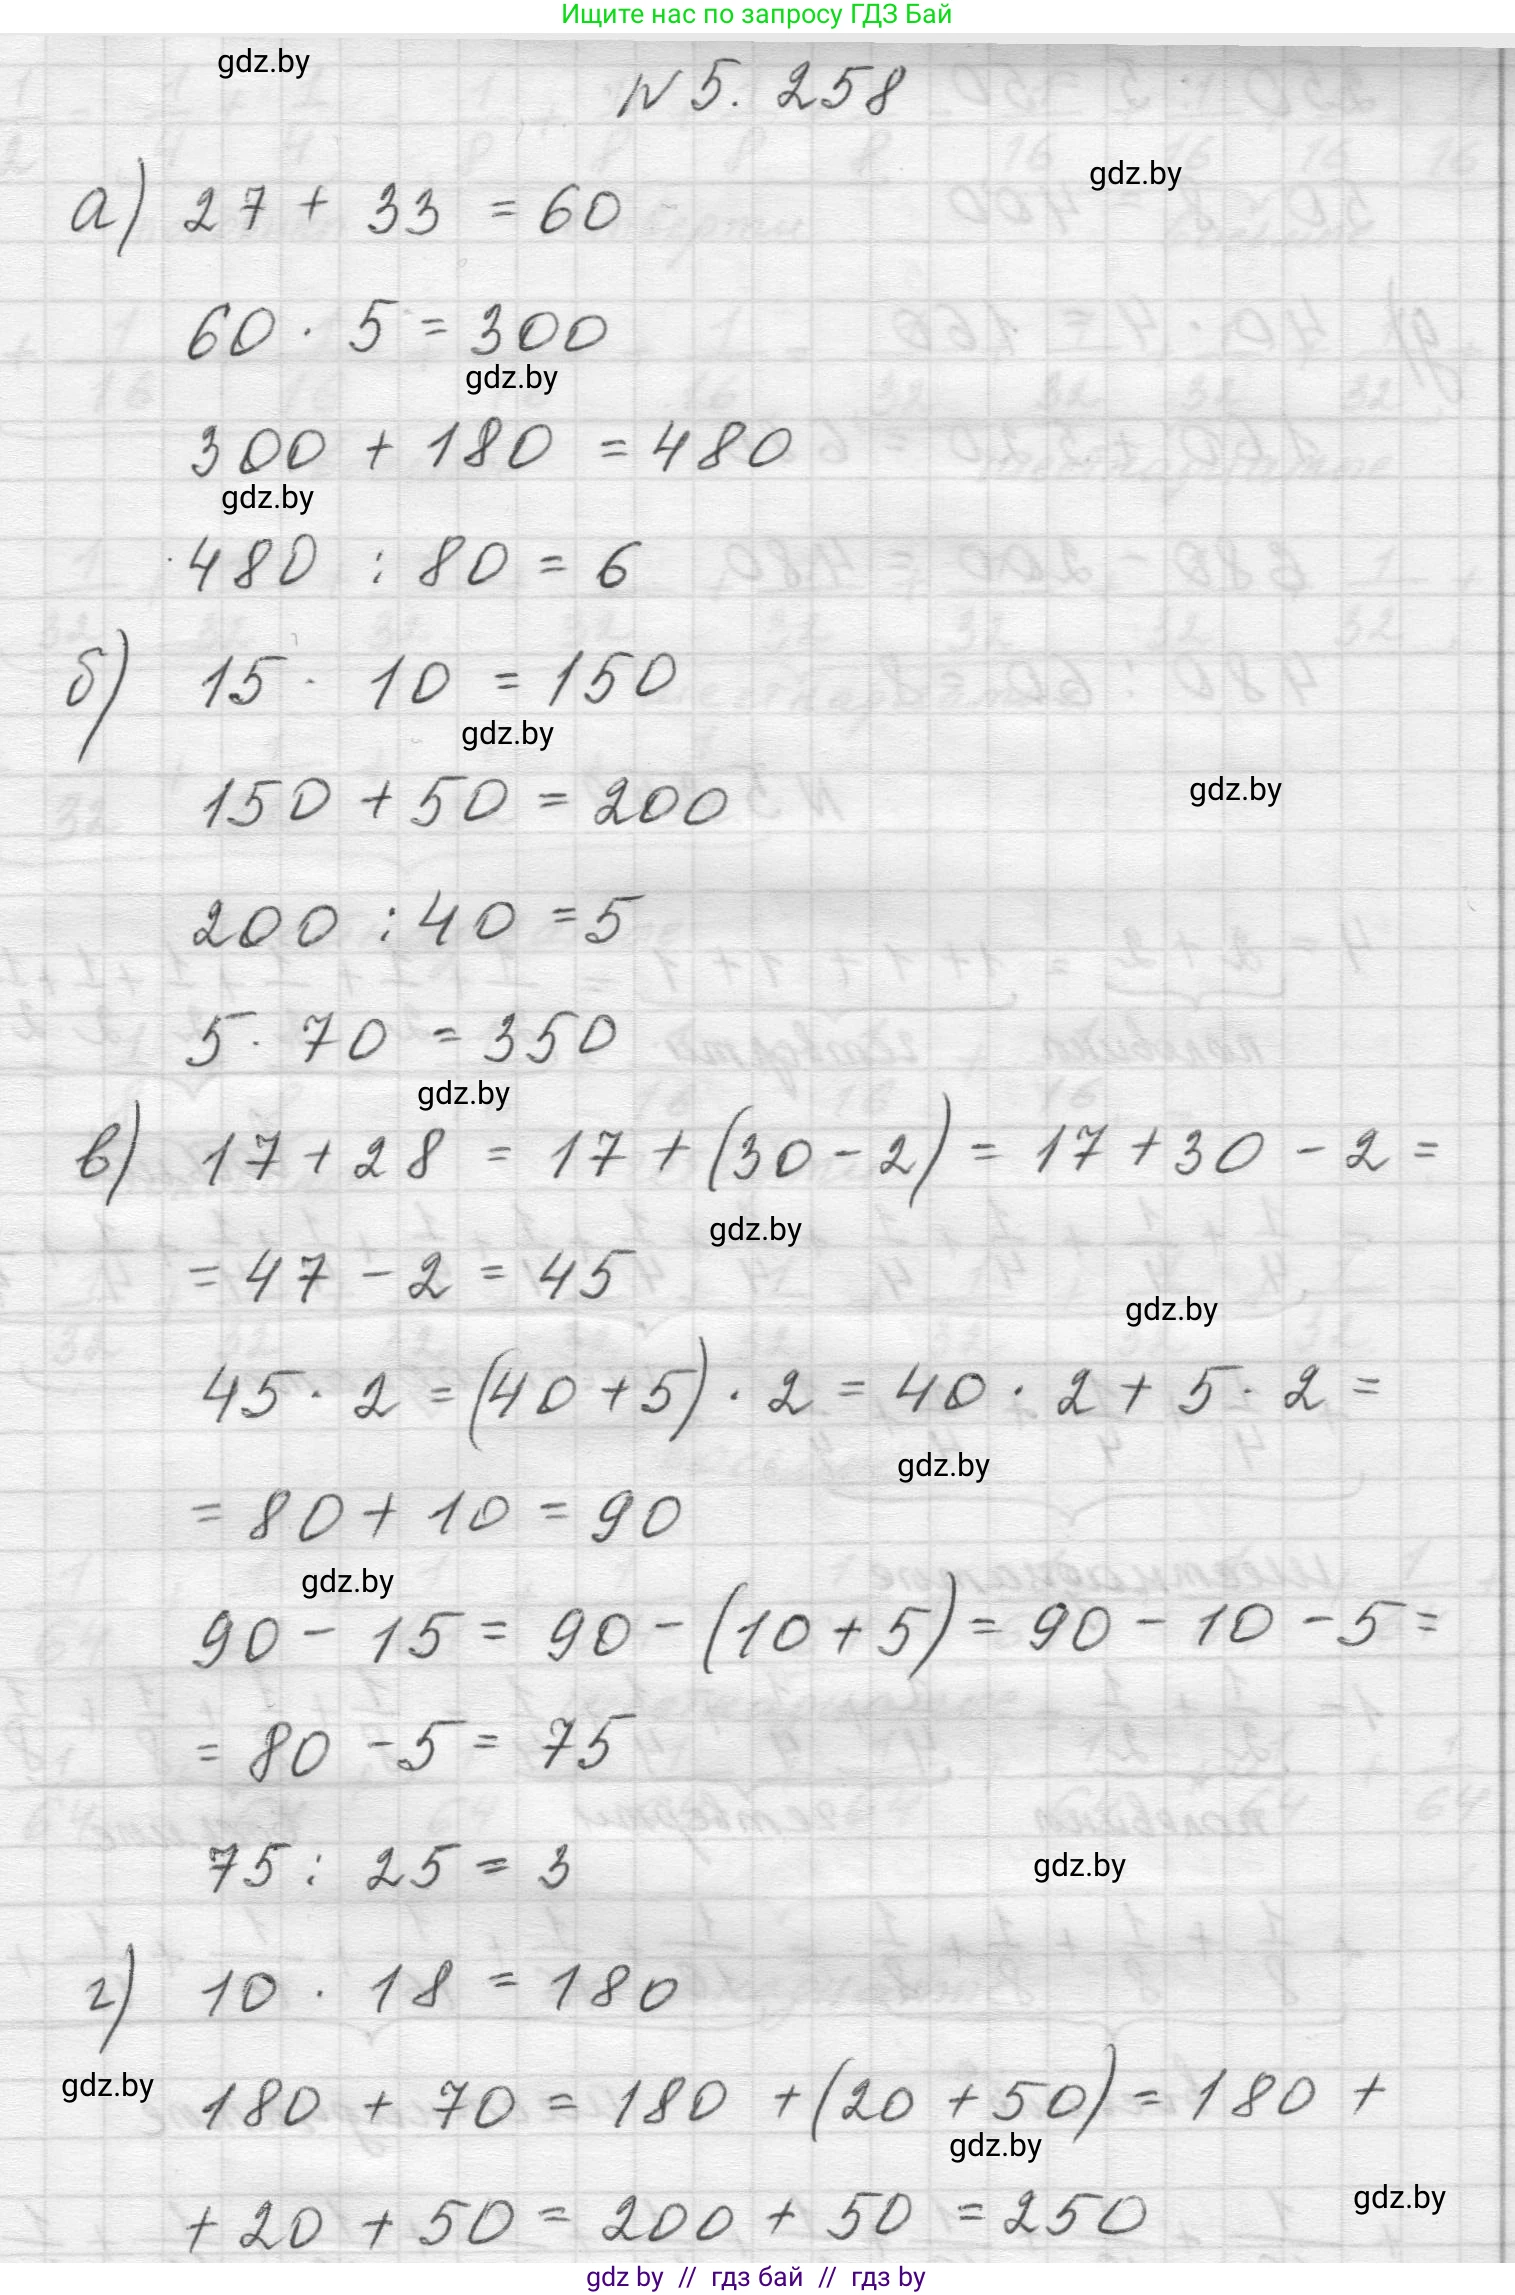 Ищите нас по запросу ГДЗ Бай
gdz.by
N 5. 258
gdz.by
а) 27 + 33 = 60
60 · 5 = 300
gdz.by
300 + 180 = 480
gdz.by
480 : 80 = 6
б) 15 · 10 = 150
gdz.by
150 + 50 = 200
gdz.by
200 : 40 = 5
5 · 70 = 350
gdz.by
в) 17 + 28 = 17 + (30 - 2) = 17 + 30 - 2 =
gdz.by
= 47 - 2 = 45
gdz.by
45 · 2 = (40 + 5) · 2 = 40 · 2 + 5 · 2 =
gdz.by
= 80 + 10 = 90
gdz.by
90 - 15 = 90 - (10 + 5) = 90 - 10 - 5 =
= 80 - 5 = 75
75 : 25 = 3
gdz.by
г) 10 · 18 = 180
gdz.by
180 + 70 = 180 + (20 + 50) = 180 +
gdz.by
+ 20 + 50 = 200 + 50 = 250
gdz.by
gdz by // гдз бай // гдз by